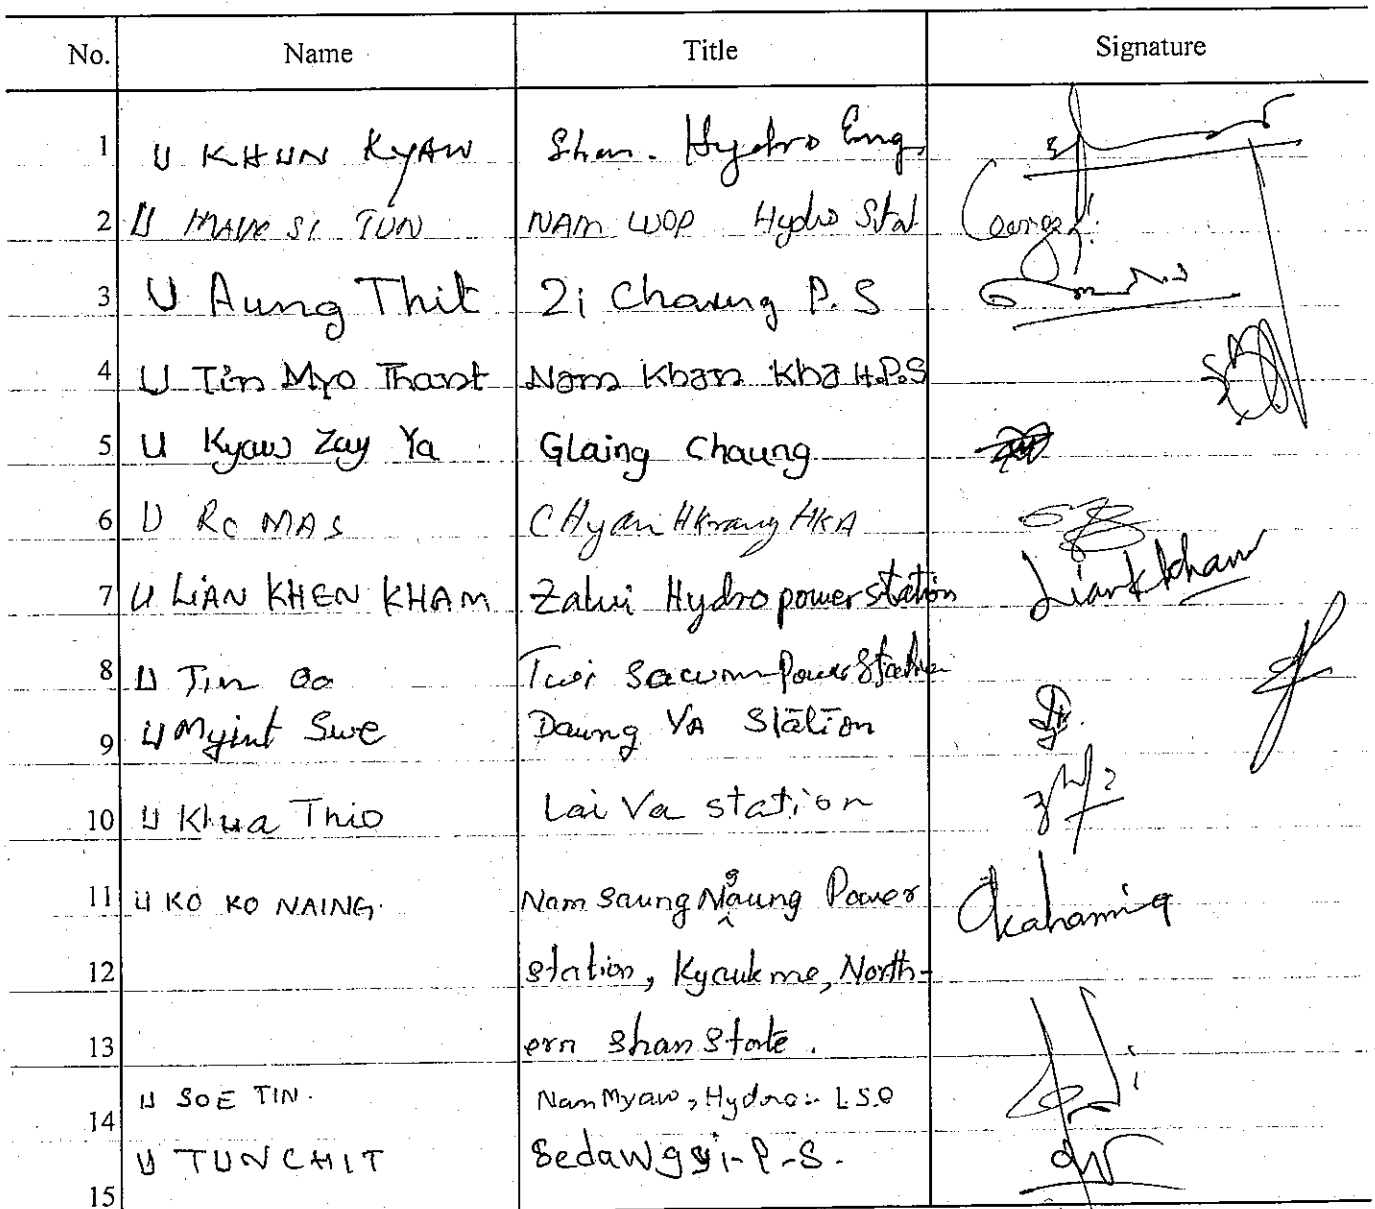 No. Name Title Signature
1 U KHUN KYAW Shan. Hydro Eng.
2 U SI TUN NAM WOP Hydro Stat
3 U Aung Thit Zi Chaung P.S
4 U Tin Myo Thant Nam Khan Kha H.P.S
5 U Kyaw Zay Ya Glaing Chaung
6 U Ro MAS CHyan HKrang HKA
7 U LiAN KHEN KHAM Zalui Hydropower station Liankkham
8 U Tin Oo Tui Sawm Power Station
9 U Myint Swe Daung Va Station
10 U Khua Thio Lai Va station
11 U KO KO NAING. Nam Saung Naung Power
12 station, Kyaukme, North-
13 ern Shan State.
14 U SOE TIN. Nam Myaw, Hydro:- L.S.O
15 U TUN CHIT Sedawgyi-P-S.